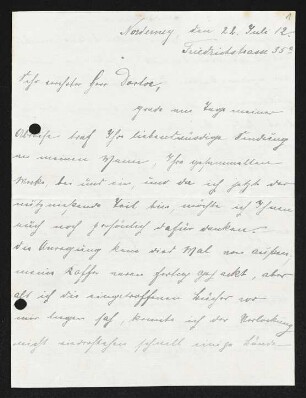 Norderney den 22. Juli 12.
Friedrichstrasse 35 a
Sehr geehrter Herr Doctor,
gerade am Tage meiner
Abreise traf Ihre liebenswürdige Sendung
an meinen Mann, Ihre gesammelten
Werke, bei uns ein, und da ich jetzt der
nutzniessende Teil bin, möchte ich Ihnen
auch noch persönlich dafür danken.
Die Anregung kam dies Mal von außen,
meine Koffer waren fertig gepackt, aber
als ich die eingetroffenen Bücher vor
mir liegen sah, konnte ich der Verlockung
nicht widerstehen schnell einige Bände